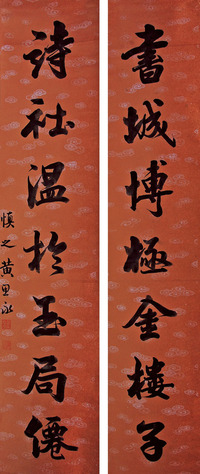 書城博極金樓子
詩社温於玉局僊
慎之黄思永